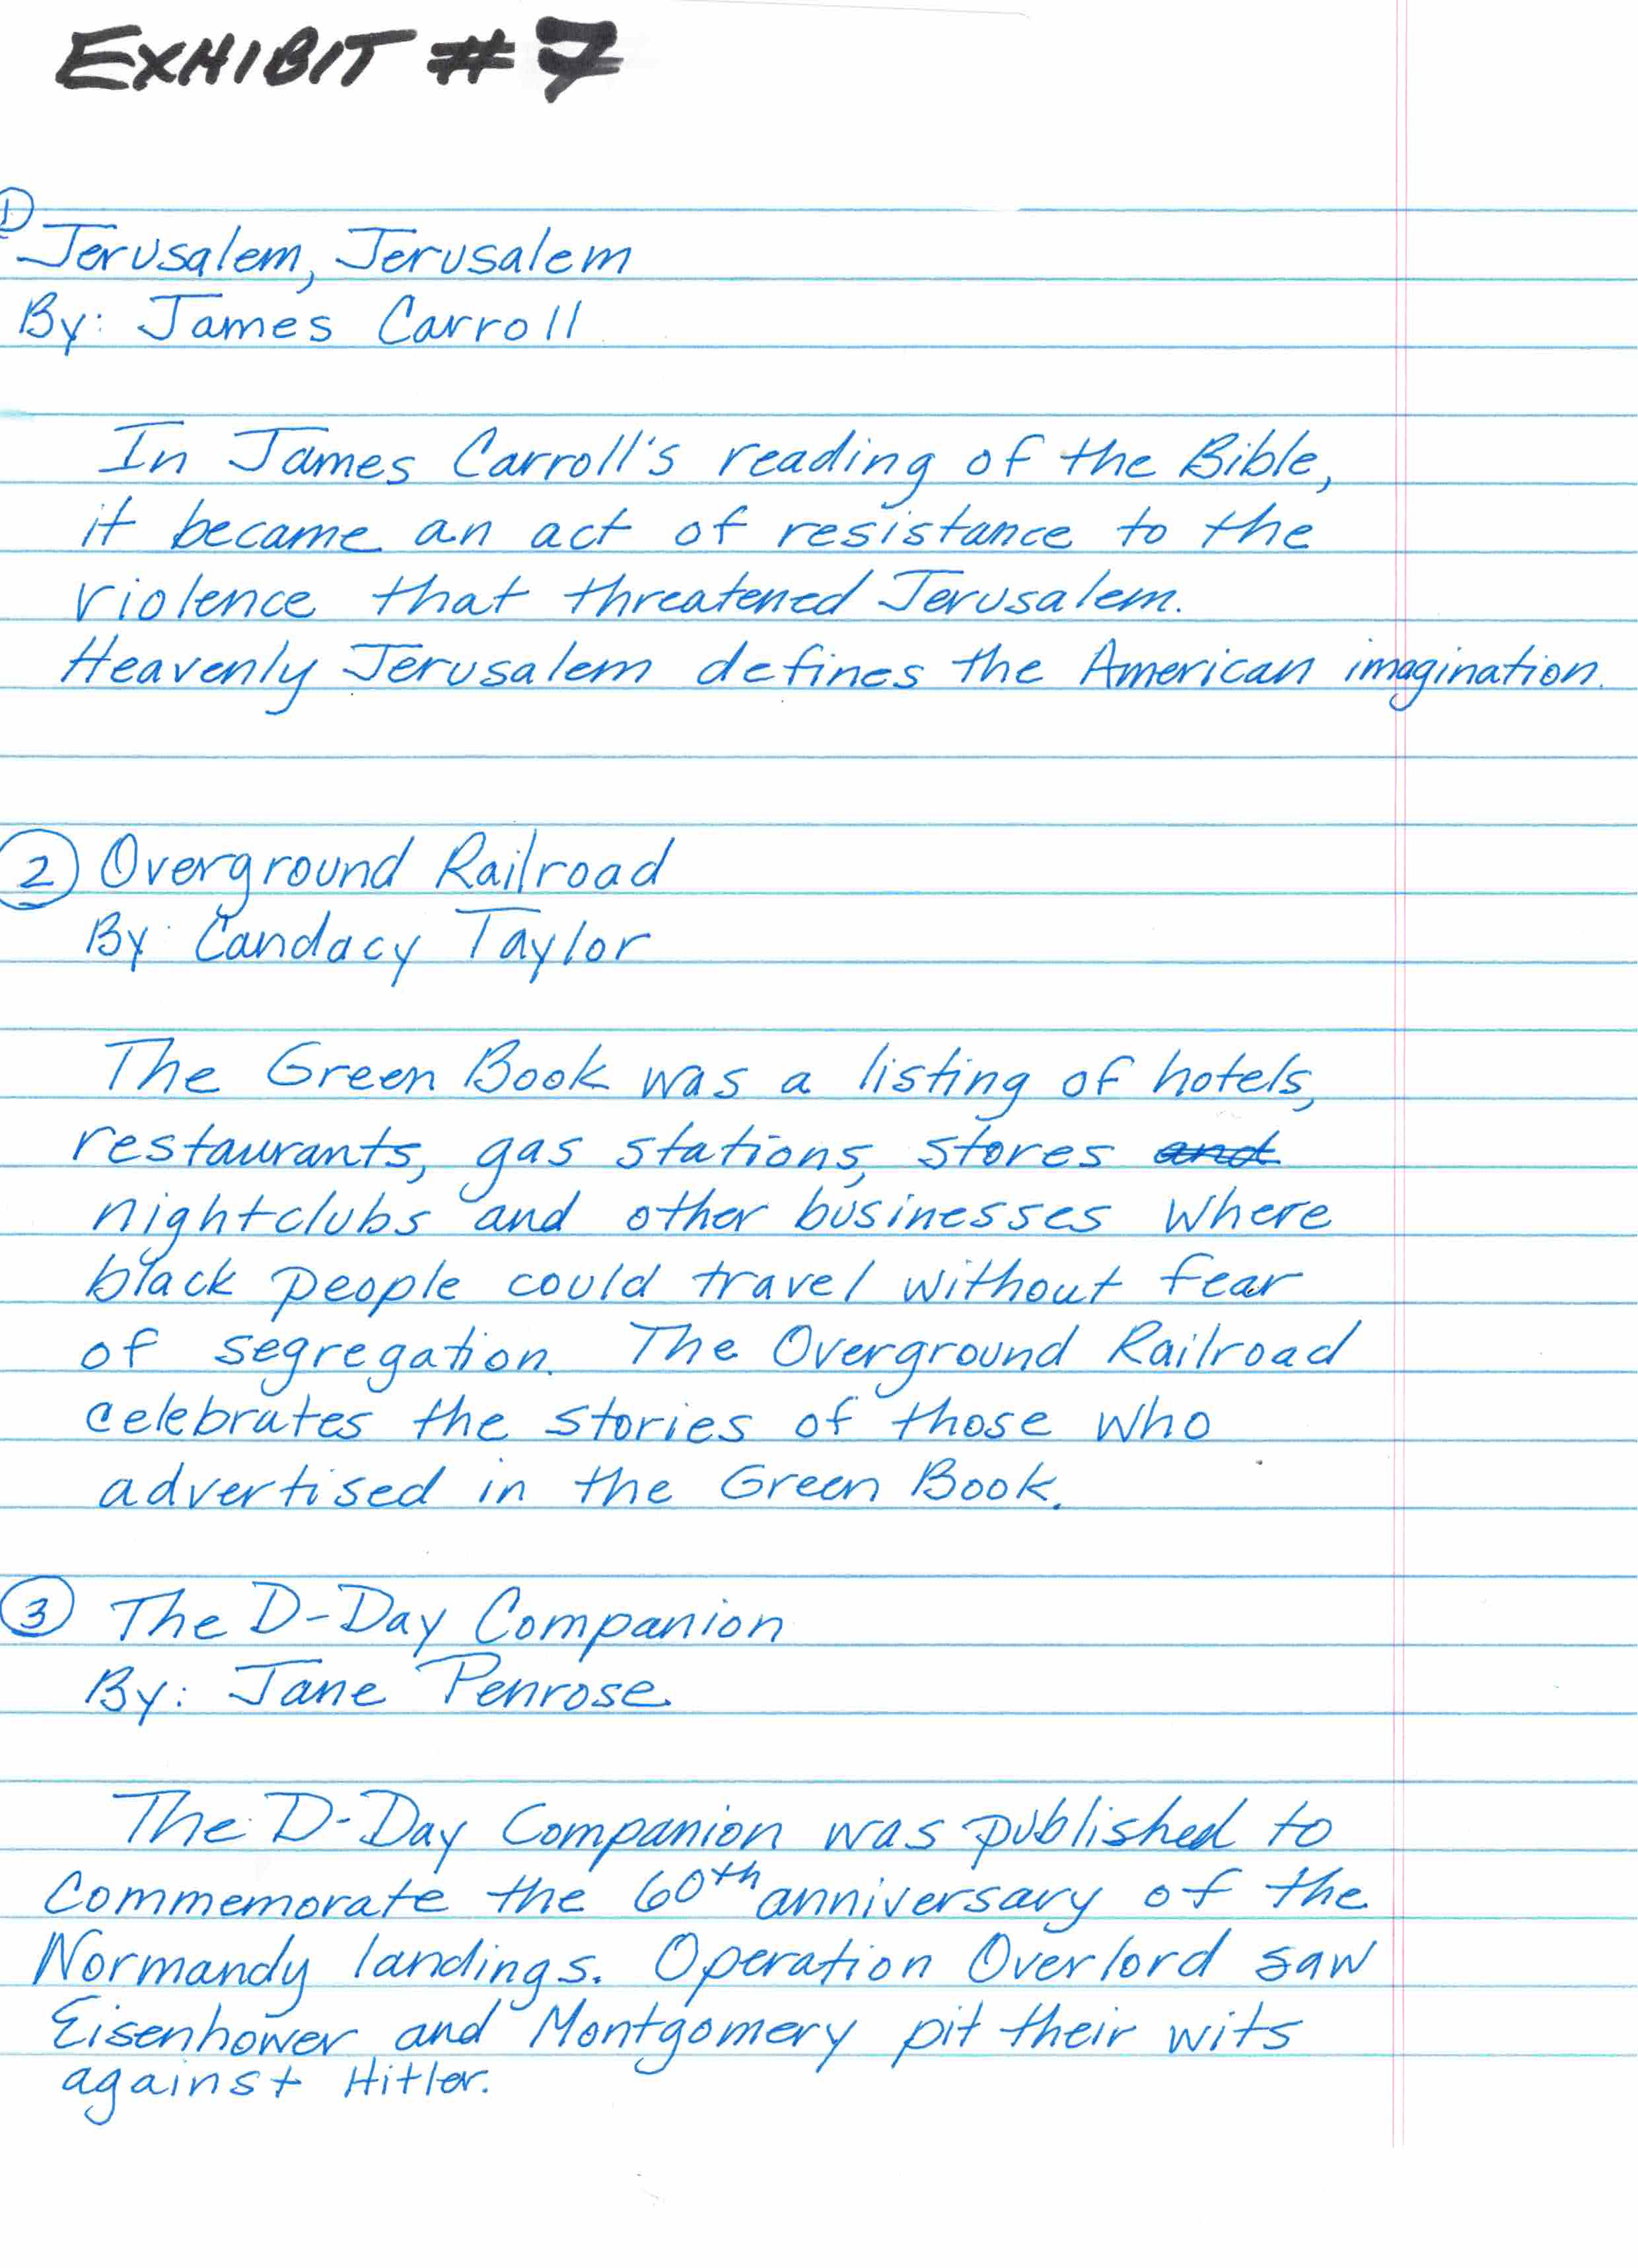 EXHIBIT #7
①
Jerusalem, Jerusalem
By: James Carroll
In James Carroll's reading of the Bible,
it became an act of resistance to the
violence that threatened Jerusalem.
Heavenly Jerusalem defines the American imagination.
② Overground Railroad
By: Candacy Taylor
The Green Book was a listing of hotels,
restaurants, gas stations, stores and
nightclubs and other businesses where
black people could travel without fear
of segregation. The Overground Railroad
celebrates the stories of those who
advertised in the Green Book.
③ The D-Day Companion
By: Jane Penrose
The D-Day Companion was published to
Commemorate the 60th anniversary of the
Normandy landings. Operation Overlord saw
Eisenhower and Montgomery pit their wits
against Hitler.